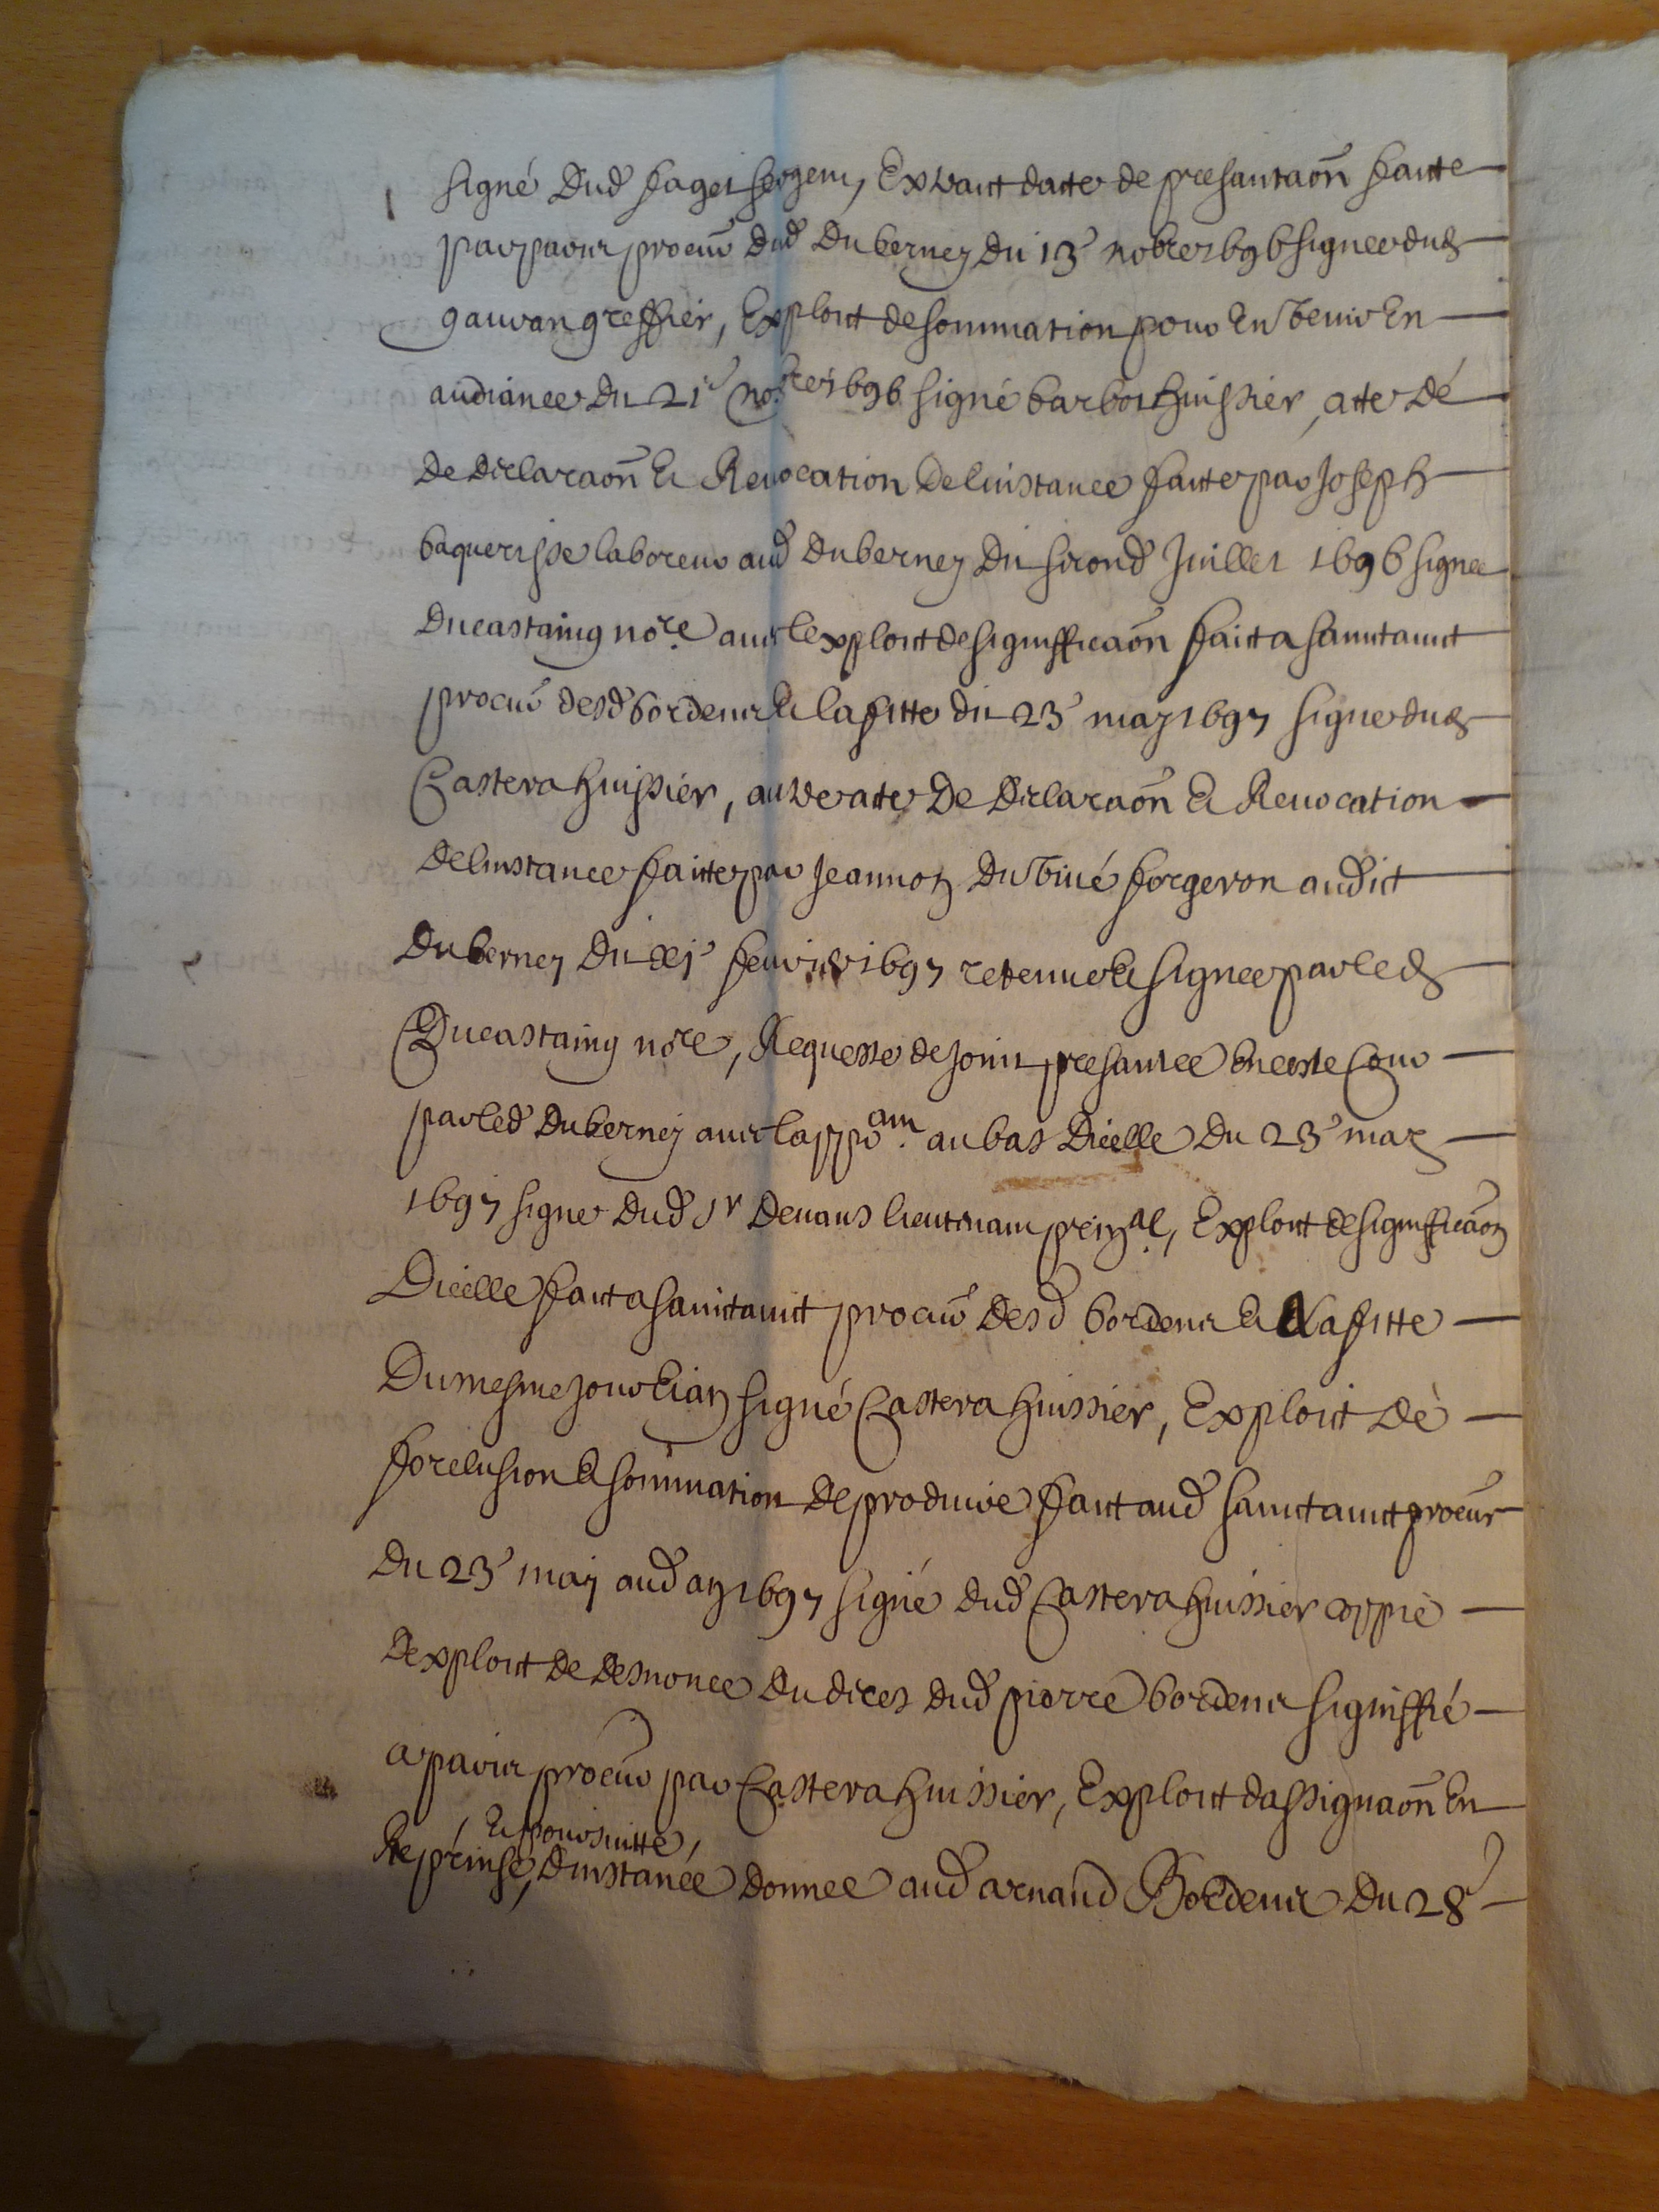 signé dud faget sergent, Extraict dacte de presantaõn faitte
par pavie procur̃ dud duberney du 13e nobre 1696 signée dud
gauvan greffier, Exploict de sommation pour En venir En
audiance du 21e nobre 1696 signé barbot huissier, acte dé
de declaraõn Et Revocation de linstance faitte par Joseph
baquerisse laboreur aud duberney du second Juillet 1696 signee
ducastaing nore avec lexploict de signifficaõn faict a sainctauict
procur̃ desd bordenx Et lafitte du 23e may 1697 signe dud
Castera huissier, autre acte de declaraõn Et Revocation
de linstance faitte par Jeannot duviné forgeron audict
duberney du xje feuvrier 1697 retenue Et signee par led
Ducastaing nore, Requeste de Joint presantee En ceste Cour
par led duberney avec lappoam au bas dicelle du 23e may
1697 signe dud Sr devans lieutenam prinal, Exploict de signifficaõn
Dicelle faict a sainctauict procur̃ desd bordenx Et Lafitte
Du mesme jour Et an signé Castera huissier, Exploict dé
forclusion Et sommation de produire faict aud sainctauict procur
du 23e may aud an 1697 signé dud Castera huissier coppie
dexploict de desnonce du deces dud pierre bordenx signiffié
a pavie procur̃ par Castera huissier, Exploict dassignaõn En
Et poursuitte,
Reprinse, dinstance donnee aud arnaud Bordenx du 28e